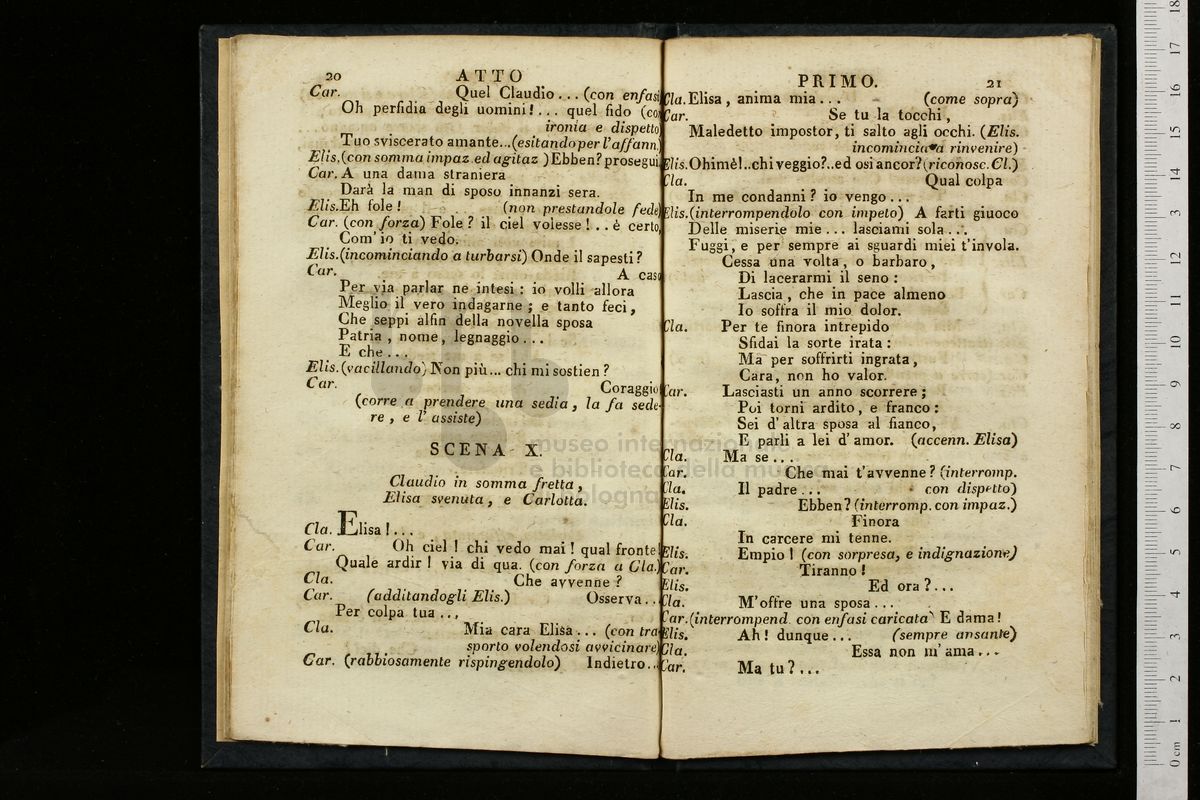 20 ATTO
Car. Quel Claudio... (con enfasi
Oh perfidia degli uomini!... quel fido (con
ironia e dispetto
Tuo sviscerato amante...(esitando per l'affann.)
Elis.(con somma impaz. ed agitaz ) Ebben? prosegui.
Car. A una dama straniera
Darà la man di sposo innanzi sera.
Elis.Eh fole! (non prestandole fede)
Car. (con forza) Fole? il ciel volesse!.. è certo,
Com' io ti vedo.
Elis.(incominciando a turbarsi) Onde il sapesti?
Car. A caso
Per via parlar ne intesi: io volli allora
Meglio il vero indagarne; e tanto feci,
Che seppi alfin della novella sposa
Patria, nome, legnaggio...
E che...
Elis.(vacillando) Non più... chi mi sostien?
Car. Coraggio
(corre a prendere una sedia, la fa sede-
re, e l' assiste)
SCENA X.
Claudio in somma fretta,
Elisa svenuta, e Carlotta.
Cla. Elisa!...
Car. Oh ciel! chi vedo mai! qual fronte!
Quale ardir! via di qua. (con forza a Cla.)
Cla. Che avvenne?
Car. (additandogli Elis.) Osserva..
Per colpa tua...
Cla. Mia cara Elisa... (con tra-
sporto volendosi avvicinare)
Car. (rabbiosamente rispingendolo) Indietro..
PRIMO. 21
Cla.Elisa, anima mia... (come sopra)
Car. Se tu la tocchi,
Maledetto impostor, ti salto agli occhi. (Elis.
incomincia a rinvenire)
Elis.Ohimè!..chi veggio?..ed osi ancor?(riconosc.Cl.)
Cla. Qual colpa
In me condanni? io vengo...
Elis.(interrompendolo con impeto) A farti giuoco
Delle miserie mie... lasciami sola...
Fuggi, e per sempre ai sguardi miei t'invola.
Cessa una volta, o barbaro,
Di lacerarmi il seno:
Lascia, che in pace almeno
Io soffra il mio dolor.
Cla. Per te finora intrepido
Sfidai la sorte irata:
Ma per soffrirti ingrata,
Cara, non ho valor.
Car. Lasciasti un anno scorrere;
Poi torni ardito, e franco:
Sei d' altra sposa al fianco,
E parli a lei d' amor. (accenn. Elisa)
Cla. Ma se...
Car. Che mai t'avvenne? (interromp.
Cla. Il padre... con dispetto)
Elis. Ebben? (interromp. con impaz.)
Cla. Finora
In carcere mi tenne.
Elis. Empio! (con sorpresa, e indignazione)
Car. Tiranno!
Elis. Ed ora?...
Cla. M'offre una sposa...
Car.(interrompend. con enfasi caricata) E dama!
Elis. Ah! dunque... (sempre ansante)
Cla. Essa non m' ama...
Car. Ma tu?...
museo internazionale
e biblioteca della musica
bologna
18
17
16
15
14
13
12
11
10
9
8
7
6
5
4
3
2
1
0 cm